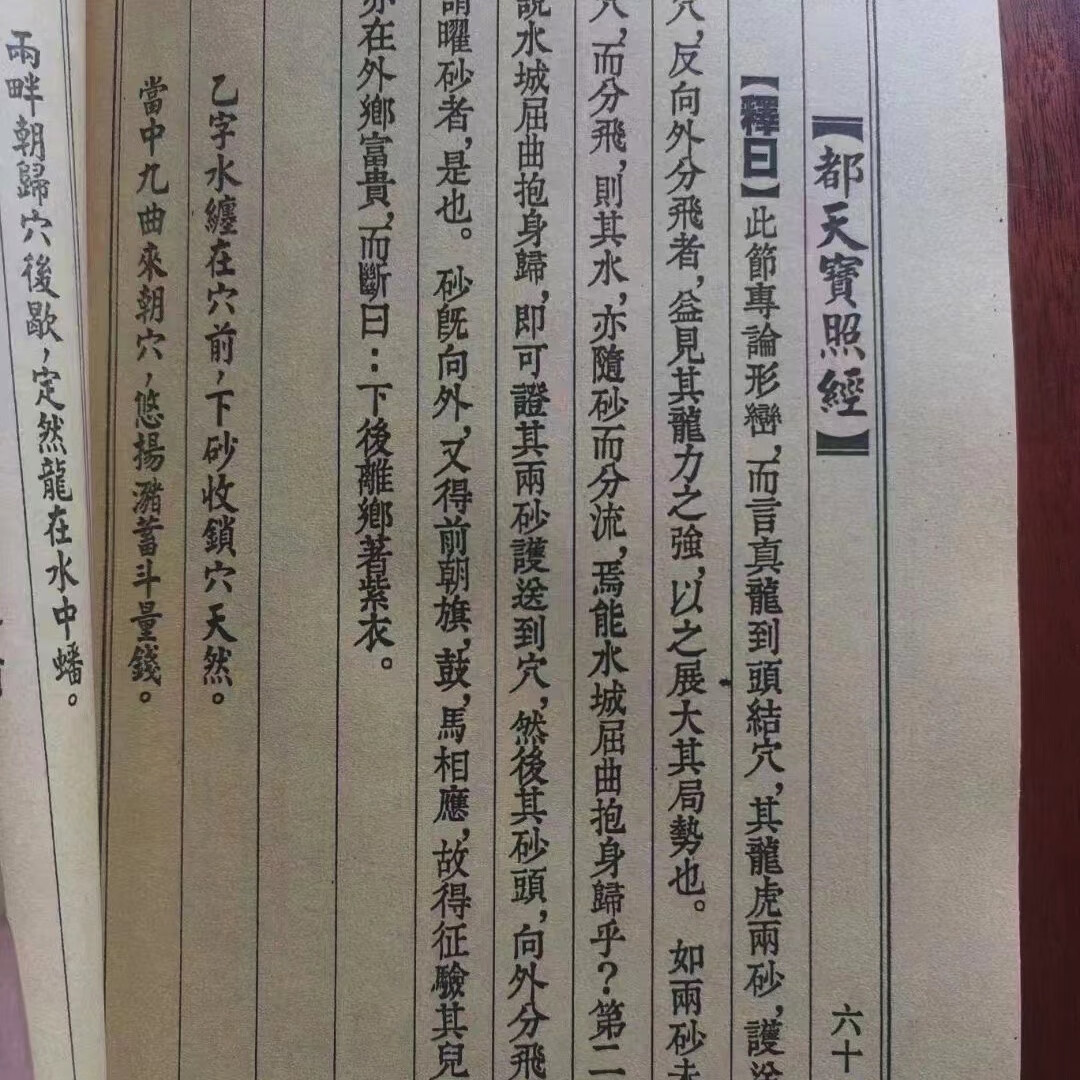 【都天寶照經】
六十
【釋曰】此節專論形巒，而言真龍到頭結穴，其龍虎兩砂，護送
穴，反向外分飛者，益見其龍力之強，以之展大其局勢也。如兩砂未
穴，而分飛，則其水，亦隨砂而分流，焉能水城屈曲抱身歸乎？第二
說水城屈曲抱身歸，即可證其兩砂護送到穴，然後其砂頭，向外分飛
謂曜砂者，是也。砂既向外，又得前朝旗，鼓，馬相應，故得征驗其兒
亦在外鄉富貴，而斷曰：下後離鄉著紫衣。
乙字水纏在穴前，下砂收鎖穴天然。
當中九曲來朝穴，悠揚瀦蓄斗量錢。
兩畔朝歸穴後歇，定然龍在水中蟠。